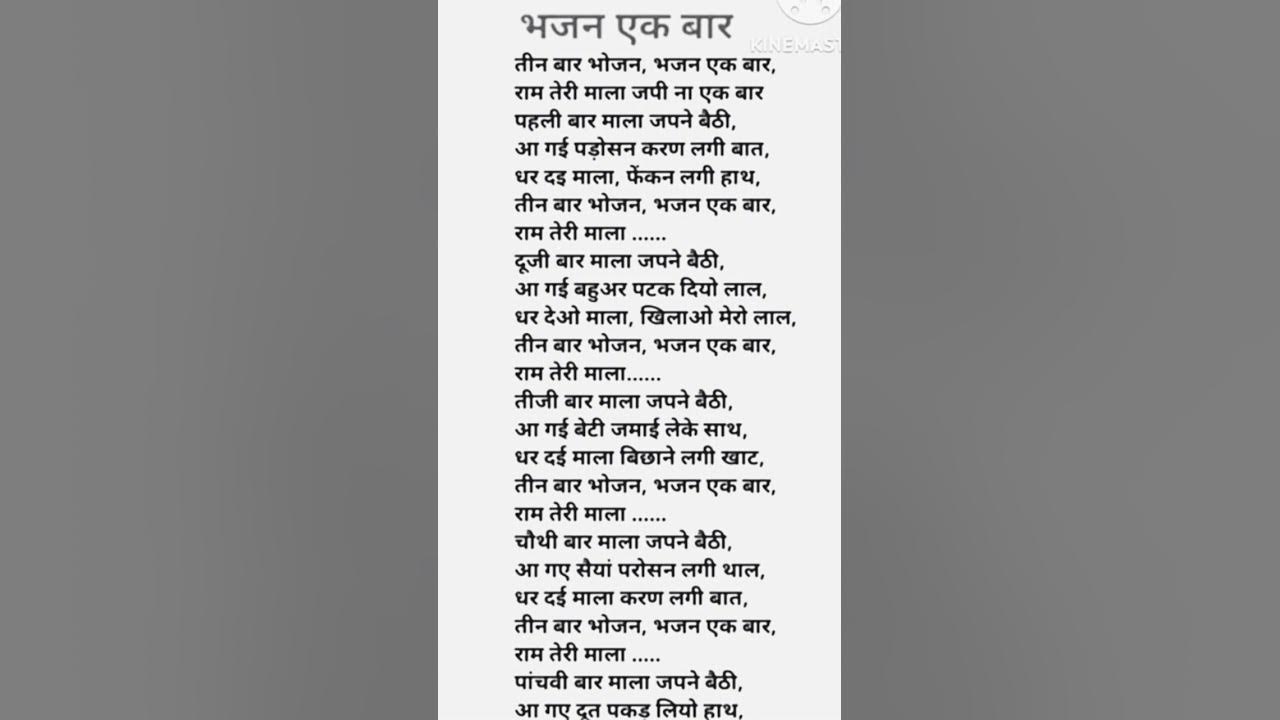 भजन एक बार
KINEMAST
तीन बार भोजन, भजन एक बार,
राम तेरी माला जपी ना एक बार
पहली बार माला जपने बैठी,
आ गई पड़ोसन करण लगी बात,
धर दइ माला, फेंकन लगी हाथ,
तीन बार भोजन, भजन एक बार,
राम तेरी माला ......
दूजी बार माला जपने बैठी,
आ गई बहुअर पटक दियो लाल,
धर देओ माला, खिलाओ मेरो लाल,
तीन बार भोजन, भजन एक बार,
राम तेरी माला......
तीजी बार माला जपने बैठी,
आ गई बेटी जमाई लेके साथ,
धर दई माला बिछाने लगी खाट,
तीन बार भोजन, भजन एक बार,
राम तेरी माला ......
चौथी बार माला जपने बैठी,
आ गए सैयां परोसन लगी थाल,
धर दई माला करण लगी बात,
तीन बार भोजन, भजन एक बार,
राम तेरी माला .....
पांचवी बार माला जपने बैठी,
आ गए दूत पकड़ लियो हाथ,